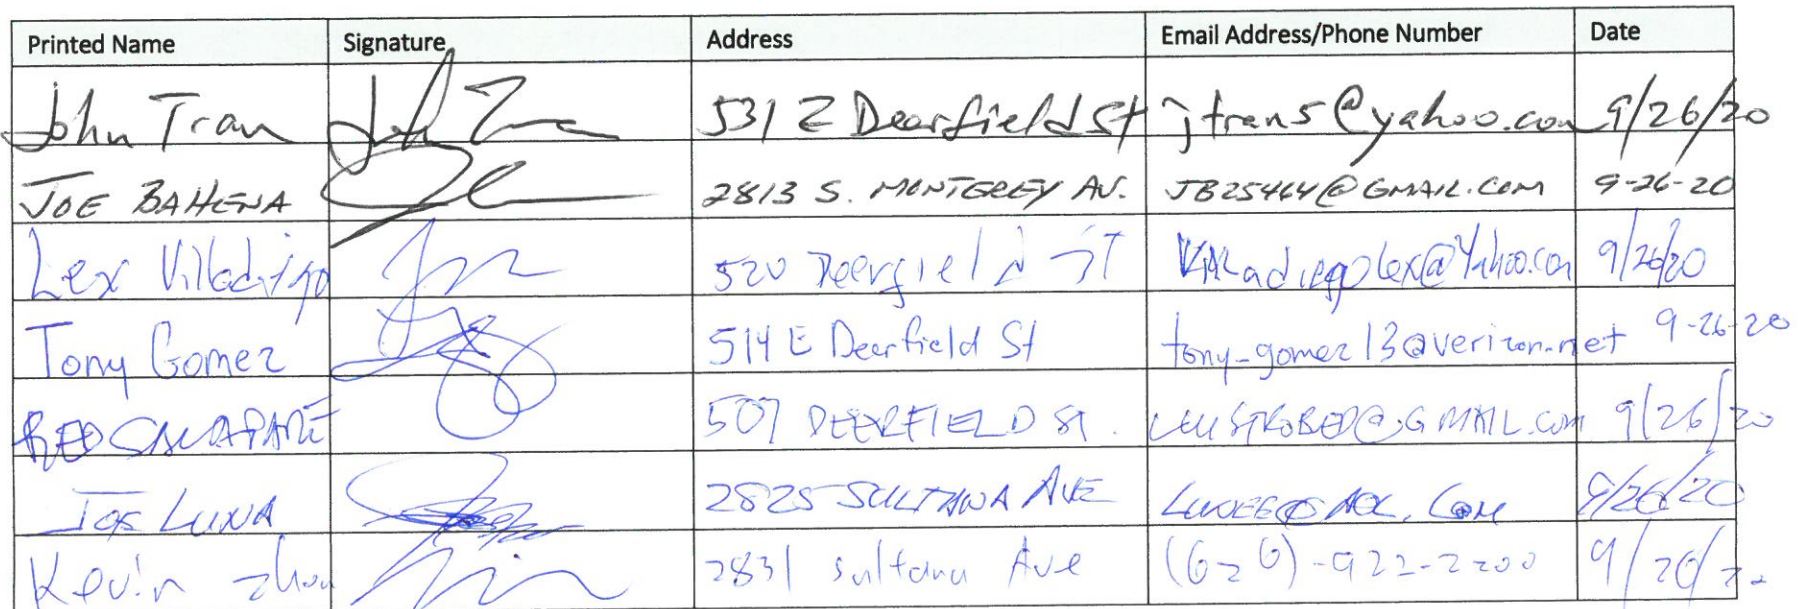 Printed Name Signature Address Email Address/Phone Number Date
John Tran 531 E Deerfield St jtran5@yahoo.com 9/26/20
JOE BAHENA 2813 S. MONTEREY AV. JB25464@GMAIL.COM 9-26-20
Lex 520 Deerfield ST 9/26/20
Tony Gomez 514 E Deerfield St tony-gomez13@verizon.net 9-26-20
507 DEERFIELD ST. 9/26/20
LUNA 2825 SULTANA AVE 9/26/20
Kevin Zhou 2831 Sultana Ave (626)-922-2200